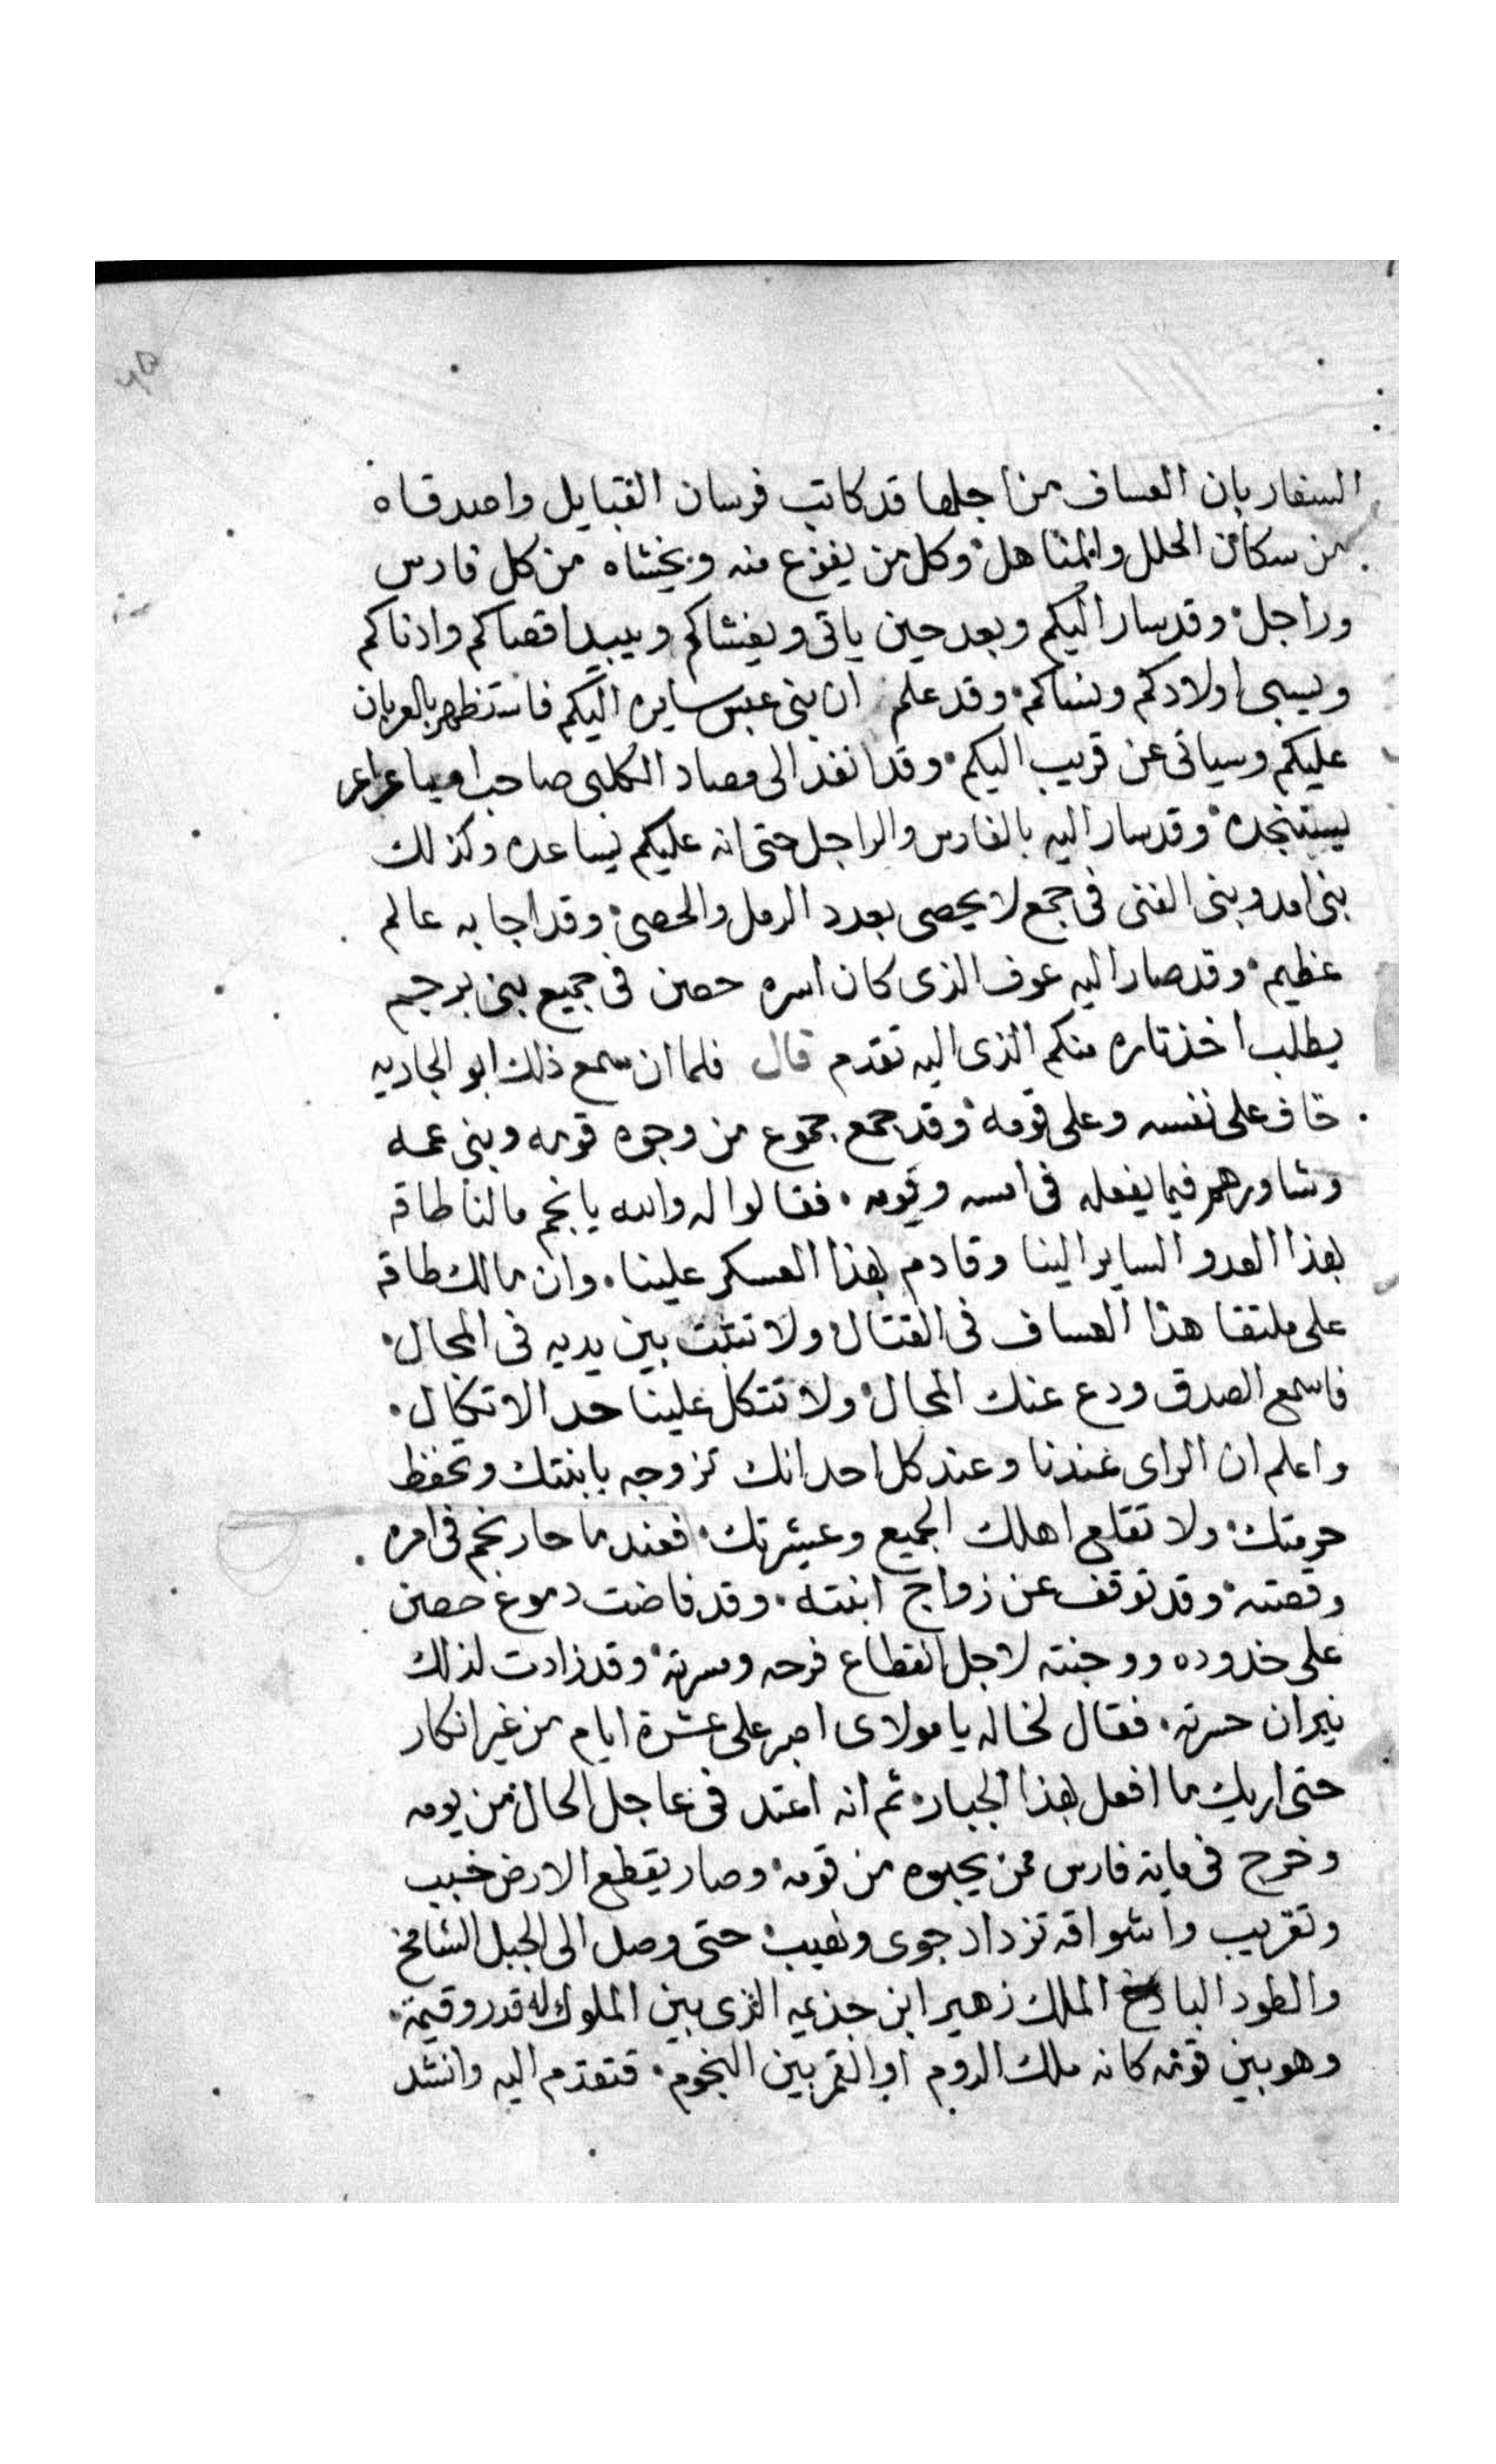 السفار بان العساف من اجلها قد كاتب فرسان القبايل واصدقاه
من سكان الحلل والمناهل وكل من يفزع منه ويخشاه من كل فارس
وراجل وقد سار اليكم وبعد حين ياتى ويغشاكم ويبيد اقصاكم وادناكم
ويسبى اولادكم ونساكم وقد علم ان بنى عبس سايره اليكم فاستظهر بالعربان
عليكم وسياتى عن قريب اليكم وقد انفذ الى مصاد الكلبى صاحب مياعراعر
يستنجده وقد سار اليه بالفارس والراجل حتى انه عليكم يساعده وكذلك
بنى اسد وبنى الغنى فى جمع لا يحصى بعدد الرمل والحصى وقد اجابه عالم
عظيم وقد صار اليه عوف الذى كان اسره حصن فى جميع بنى برجيم
يطلب اخذ تاره منكم الذى اليه تقدم قال فلما ان سمع ذلك ابو الجاريه
خاف على نفسه وعلى قومه وقد جمع جموع من وجوه قومه وبنى عمه
وشاورهم فيما يفعله فى امسه ويومه فقالوا له والله يا نجم ما لنا طاقه
بهذا العدو الساير الينا وقادم بهذا العسكر علينا وان مالك طاقه
على ملتقا هذا العساف فى القتال ولا تثبت بين يديه فى المجال
فاسمع الصدق ودع عنك المحال ولا تتكل علينا حد الاتكال
واعلم ان الراى عندنا وعند كل احد انك تزوجه بابنتك وتحفظ
حرمتك ولا تقلع اهلك الجميع وعشيرتك فعندما حار نجم فى امره
وقصته وقد توقف عن زواج ابنته وقد فاضت دموع حصن
على خدوده ووجنته لاجل انقطاع فرحه ومسرته وقد زادت لذلك
نيران حسرته فقال لخاله يا مولاى اصبر على عشرة ايام من غير انكار
حتى اريك ما افعل بهذا الجبار ثم انه اعتد فى عاجل الحال من يومه
وخرج فى ماية فارس ممن يحبوه من قومه وصار يقطع الارض خبب
وتقريب واشواقه تزداد جوى ولهيب حتى وصل الى الجبل الشامخ
والطود الباذخ الملك زهير ابن جذيمه الذى بين الملوك له قدر وقيمة
وهو بين قومه كانه ملك الروم او القمر بين النجوم فتقدم اليه وانشد